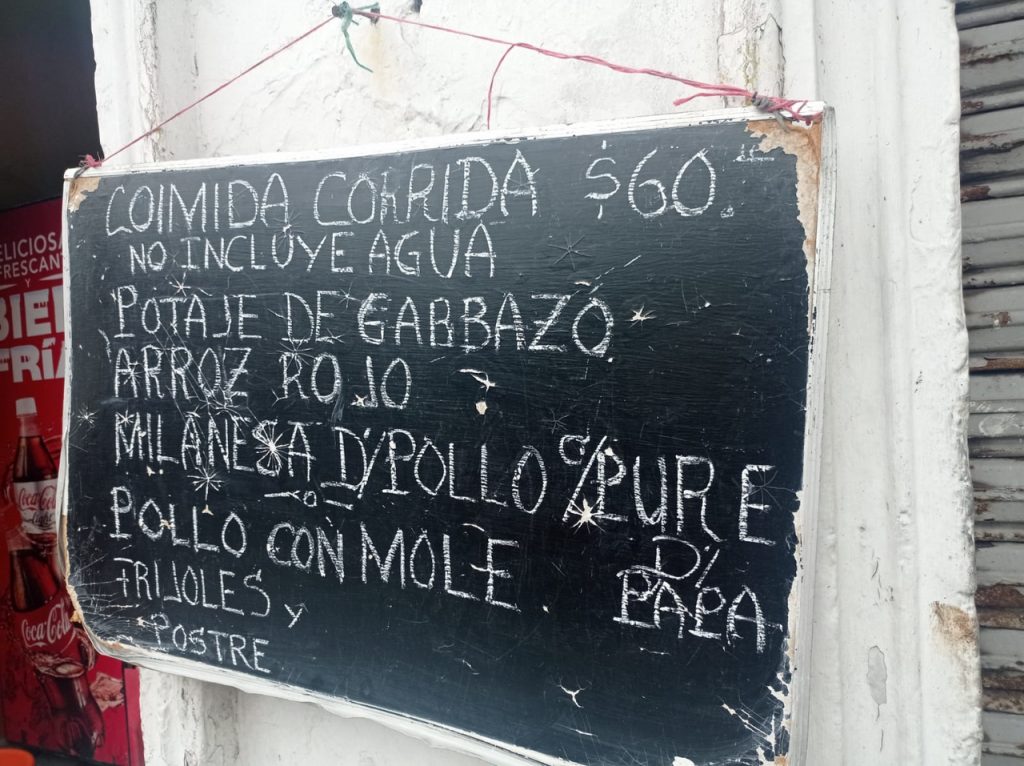 COIMIDA CORRIDA $60.=
NO INCLUYE AGUA
POTAJE DE GABBAZO
ARROZ ROJO
MILANESA D/POLLO C/PURE
D/
PAPA
POLLO CON MOLE
FRIJOLES Y
POSTRE
ELICIOSA
FRESCANT
Y
BIEN
FRÍA
Coca-Cola
Coca-Cola